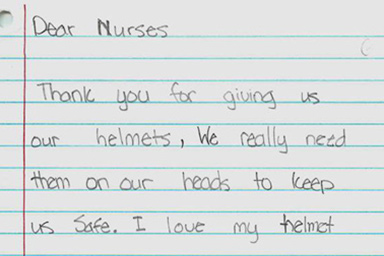 Dear Nurses
Thank you for giving us
our helmets, We really need
them on our heads to keep
us safe. I love my helmet